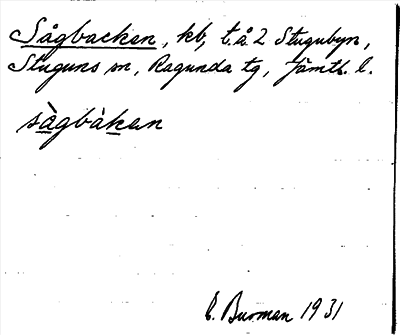 Sågbacken, kb, t.å. 2 Stugubyn,
Stuguns sn, Ragunda tg, Jämtl. l.
sågbàken
C. Burman 1931